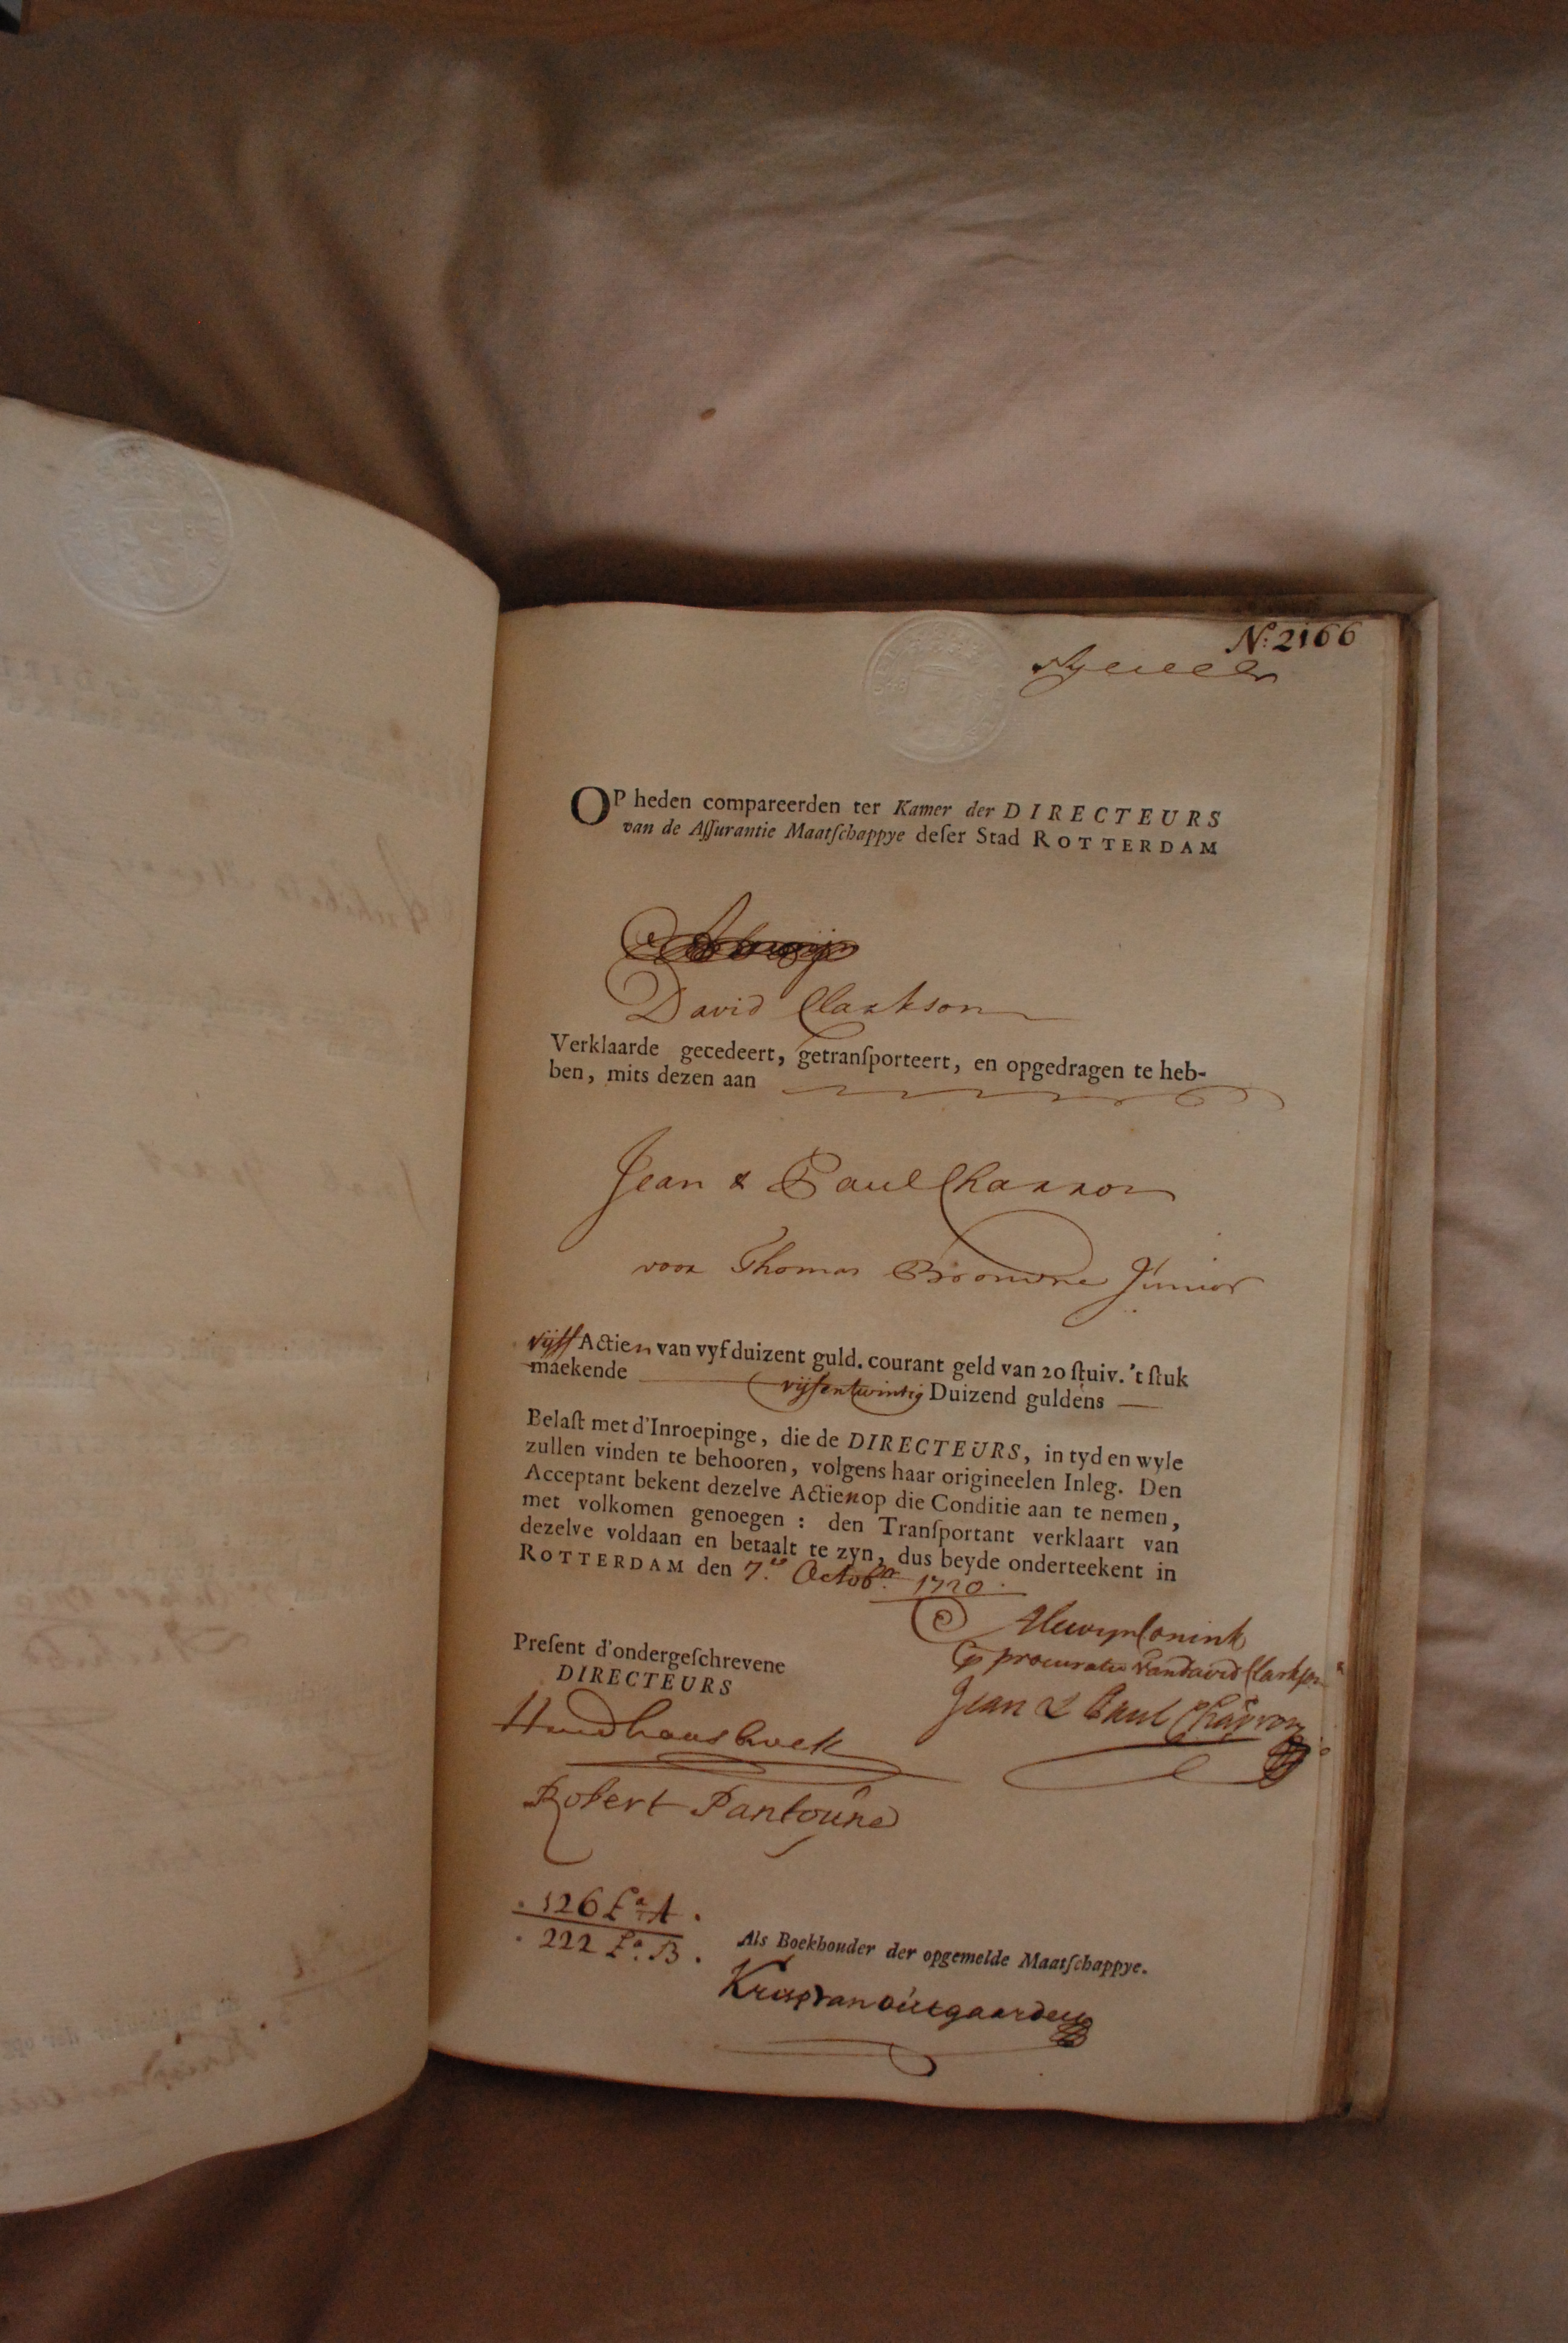 N.º 2166
OP heden compareerden ter Kamer der DIRECTEURS
van de Aſſurantie Maatſchappye deſer Stad ROTTERDAM
David Clarkson
Verklaarde gecedeert, getranſporteert, en opgedragen te heb-
ben, mits dezen aan
Jean & Paul Charron
voor Thomas Broomne Junior
vijff Actien van vyf duizent guld. courant geld van 20 ſtuiv. 't ſtuk
maekende vijfentwintig Duizend guldens
Belaſt met d'Inroepinge, die de DIRECTEURS, in tyd en wyle
zullen vinden te behooren, volgens haar origineelen Inleg. Den
Acceptant bekent dezelve Actien op die Conditie aan te nemen,
met volkomen genoegen : den Tranſportant verklaart van
dezelve voldaan en betaalt te zyn, dus beyde onderteekent in
ROTTERDAM den 7.en Octobr. 1720.
procuratie van david Clarkson
Jean & Paul Charron
Preſent d'ondergeſchrevene
DIRECTEURS
Robert Pantoune
126 Lª A.
222 Lª. B.
Als Boekhouder der opgemelde Maatſchappye.